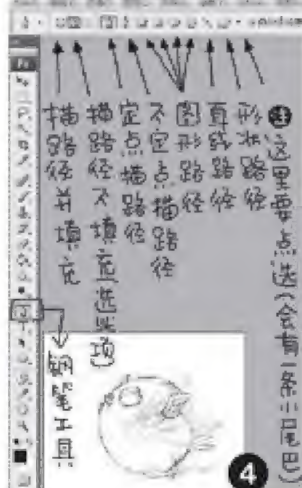 描路径并填充
描路径不填充(选此项)
定点描路径
不定点描路径
图形路径
直线路径
形状路径
注 这里要点选(会有一条小尾巴)
钢笔工具
4